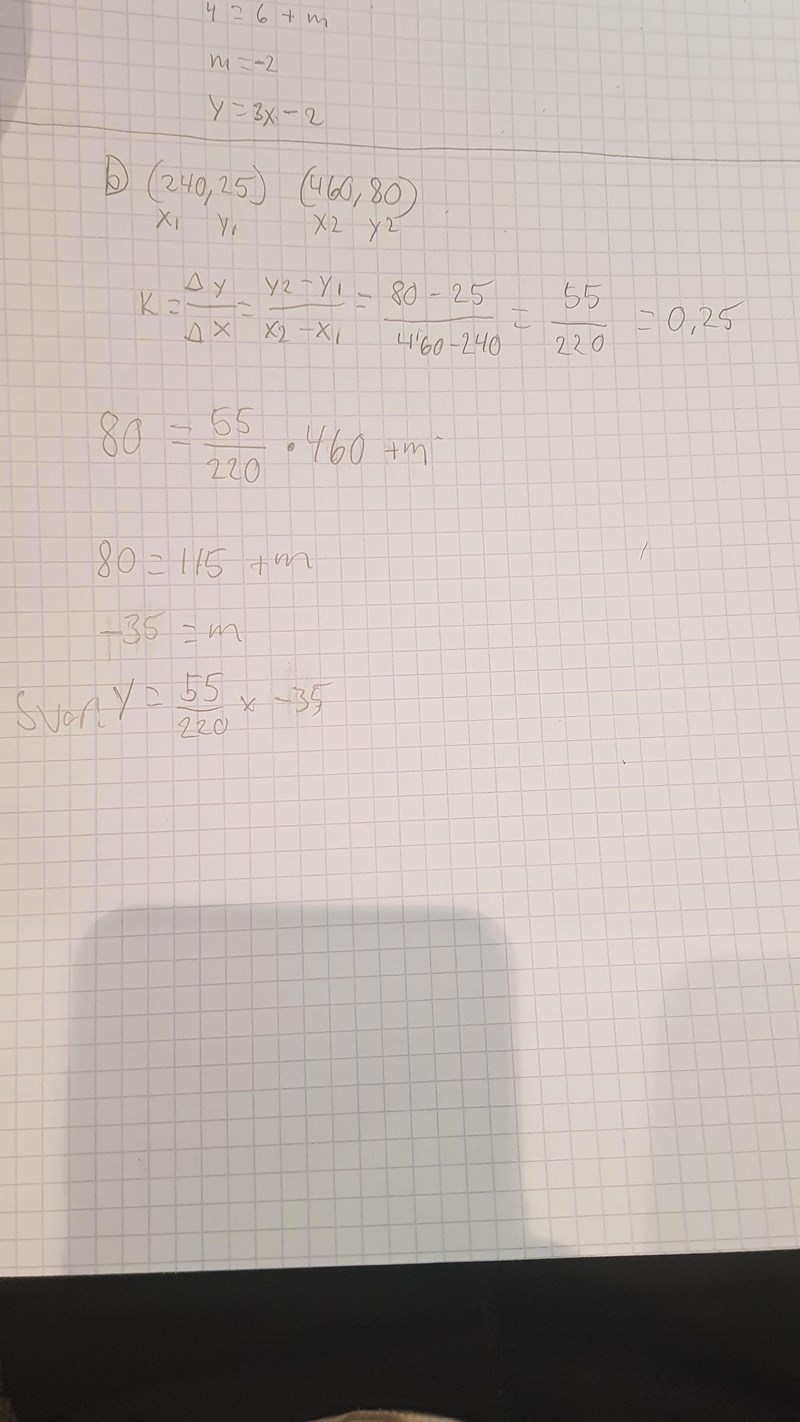 4 = 6 + m
m = -2
y = 3x - 2
b) (240,25) (460,80)
x1 y1 x2 y2
K = Δy/Δx = y2-y1/x2-x1 = 80-25/460-240 = 55/220 = 0,25
80 = 55/220 · 460 + m
80 = 115 + m
-35 = m
Svar y = 55/220 x -35